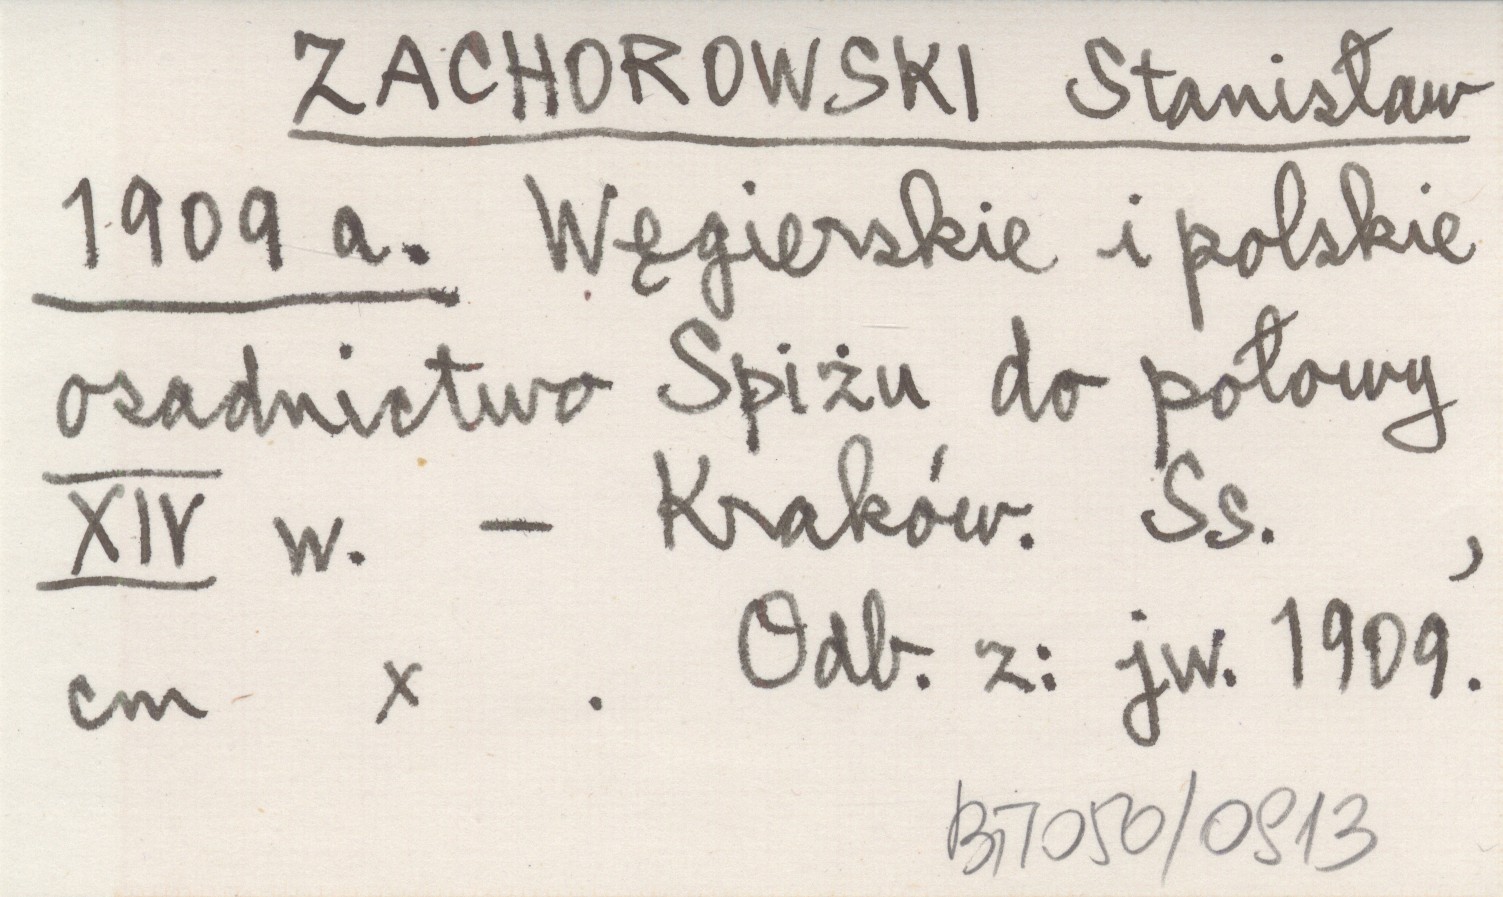 ZACHOROWSKI Stanisław
1909 a. Węgierskie i polskie
osadnictwo Spiżu do połowy
XIV w. – Kraków. Ss. ,
cm x . Odb. z: jw. 1909.